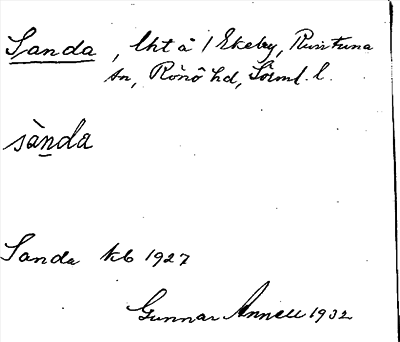 Sanda, lht å 1 Ekeby, Runtuna
sn, Rönö hd, Sörml. l.
sàndа
Sanda kb 1927
Gunnar Annell 1932